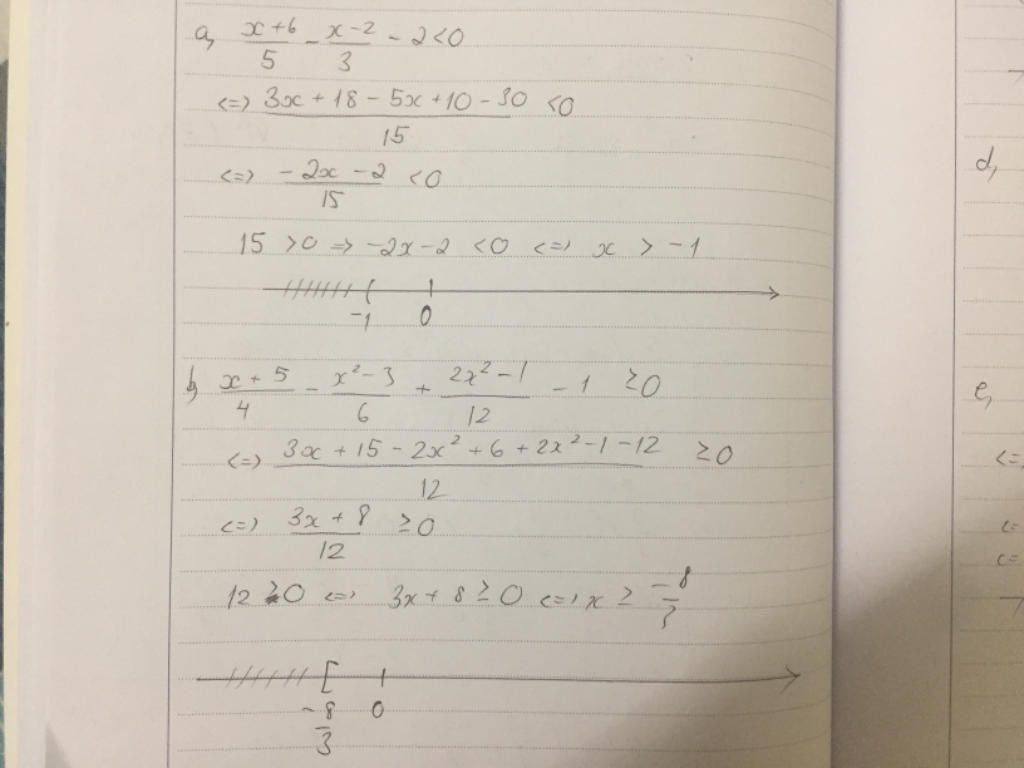 a, (x+6)/5 - (x-2)/3 - 2 < 0
<=> (3x + 18 - 5x + 10 - 30)/15 < 0
<=> (-2x - 2)/15 < 0
15 > 0 => -2x - 2 < 0 <=> x > -1
-1 0
b, (x + 5)/4 - (x² - 3)/6 + (2x² - 1)/12 - 1 ≥ 0
<=> (3x + 15 - 2x² + 6 + 2x² - 1 - 12)/12 ≥ 0
<=> (3x + 8)/12 ≥ 0
12 > 0 <=> 3x + 8 ≥ 0 <=> x ≥ -8/3
-8/3 0
d,
e,
<=
<=
<=